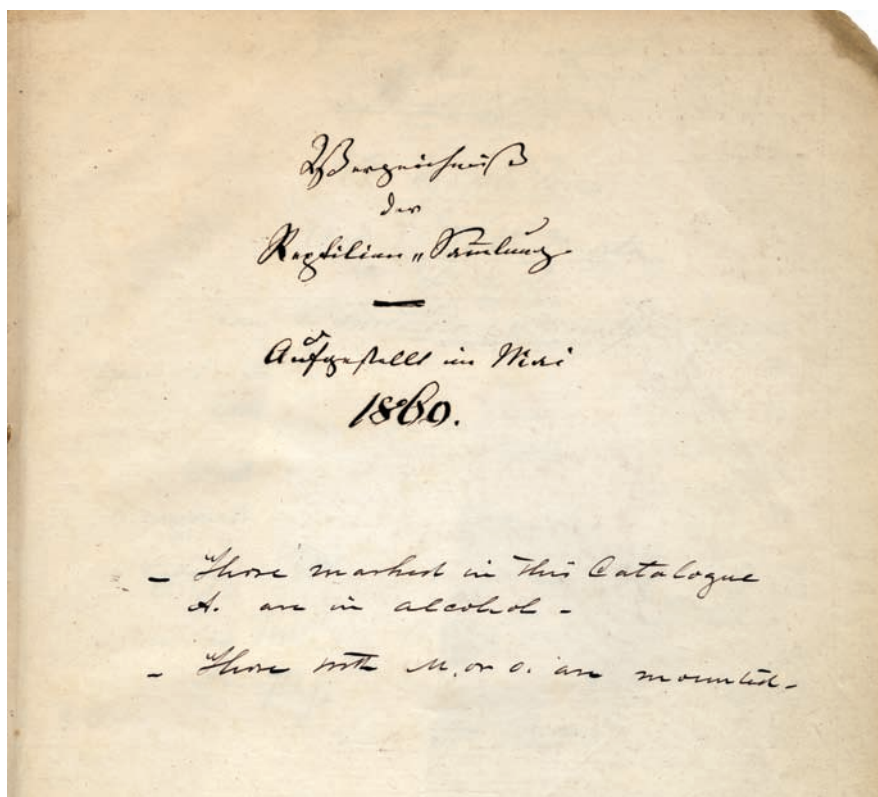 Verzeichniß
der
Reptilien „Sam̅lung
Aufgestellt im Mai
1860.
- Those marked in this Catalogue
A. are in alcohol -
- Those with M. or o. are mounted -